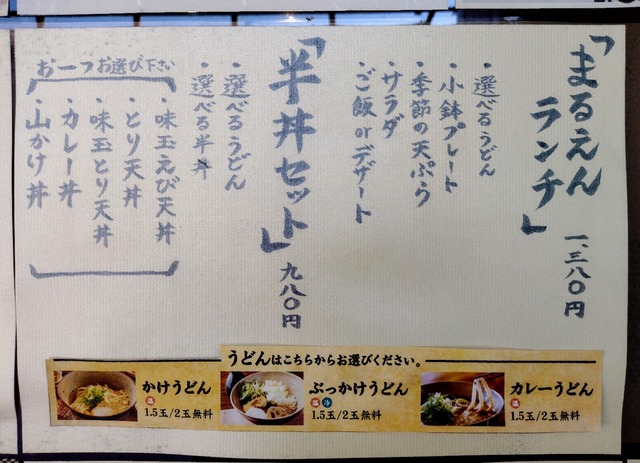 「まるえん
ランチ」
一、三八〇円
・選べるうどん
・小鉢プレート
・季節の天ぷら
・サラダ
・ご飯orデザート
「半丼セット」
九八〇円
・選べるうどん
・選べる半丼
お一つお選び下さい
・味玉えび天丼
・とり天丼
・味玉とり天丼
・カレー丼
・山かけ丼
うどんはこちらからお選びください。
かけうどん
温
1.5玉/2玉無料
ぶっかけうどん
温 冷
1.5玉/2玉無料
カレーうどん
温
1.5玉/2玉無料